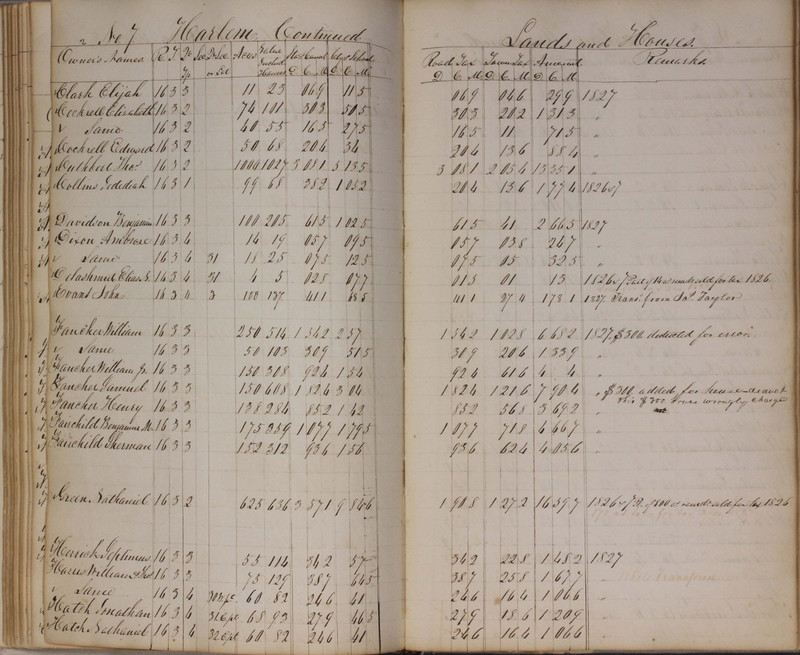 No 7 Harlem Continued Lands and Houses.
Owner's Names R. T. Acres Value Road Tax Town Tax Amount Remarks
D C M D C M D C M D C M D C M
Clark Elijah 16 3 3 11 23 069 115 069 046 299 1827
Cockrell Elizabeth 16 3 2 74 101 303 505 303 202 1 313 "
" Same 16 3 2 40 55 165 275 165 11 715 "
Cockrell Edward 16 3 2 50 68 204 34 204 136 884 "
Cuthbert Thos 16 3 2 1000 1027 3 081 5 135 3 081 2 054 13 351 "
Collins Jedediah 16 3 1 99 68 282 1 052 204 136 1 774 1826&7
Davidson Benjamin 16 3 3 100 205 615 1 025 615 41 2 665 1827
Dixon Ambrose 16 3 4 14 19 057 095 057 038 247 "
" Same 16 3 4 31 18 25 075 125 075 05 325 "
Delashmut Elias N. 16 3 4 31 4 5 028 077 015 01 13
Evans John 16 3 4 3 100 137 411 685 411 27 4 178 1 1827 Trans' from Jas Taylor
Fancher William 16 3 3 250 514 1 542 2 57 1 542 1 028 6 682 1827 $300 deducted for error
" Same 16 3 3 50 103 309 515 309 206 1 339 "
Fancher William Jr. 16 3 3 150 308 924 1 54 924 616 4 4 "
Fancher Samuel 16 3 3 150 608 1 824 3 04 1 824 1 216 7 904 " $300 added for house
Fancher Henry 16 3 3 138 284 852 1 42 852 568 3 692 " this $300 was wrongly charge
Fairchild Benjamin M. 16 3 3 175 359 1 077 1 795 1 077 718 4 667 "
Fairchild Sherman 16 3 3 152 312 936 1 56 936 624 4 056 "
Green Nathaniel 16 3 2 625 636 3 571 9 846 1 908 1 272 16 597
Herrick Septimus 16 3 3 55 114 342 57 342 228 1 482 1827
Harris William & Thos 16 3 3 75 129 387 645 387 258 1 677 "
" Same 16 3 4 60 82 246 41 246 164 1 066 "
Hatch Jonathan 16 3 4 68 93 279 465 279 186 1 209 "
Hatch Nathaniel 16 3 4 60 82 246 41 246 164 1 066 "